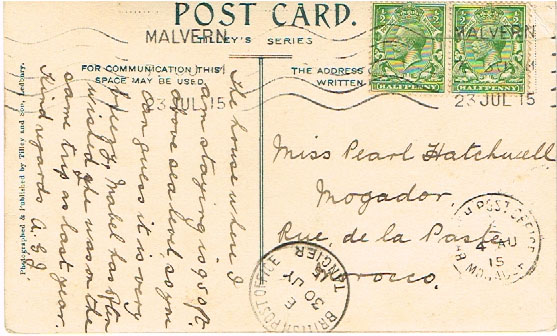 POST CARD.
TILLEY'S SERIES
MALVERN
23 JUL 15
MALVERN
23 JUL 15
HALFPENNY
HALFPENNY
FOR COMMUNICATION THIS
SPACE MAY BE USED.
THE ADDRESS
WRITTEN
Photographed & Published by Tilley and Son, Ledbury.
The house where I
am staying is 95 ft.
above sea level, so you
can guess it is very
Mabel has often
wished she was on the
same trip as last year.
Kind regards A.G.J.
Miss Pearl Hatchwell
Mogador.
Rue. de la Poste
Morocco.
BRITISH POST OFFICE
TANGIER
E
30 JY
15
POST OFFICE
4 AU
15